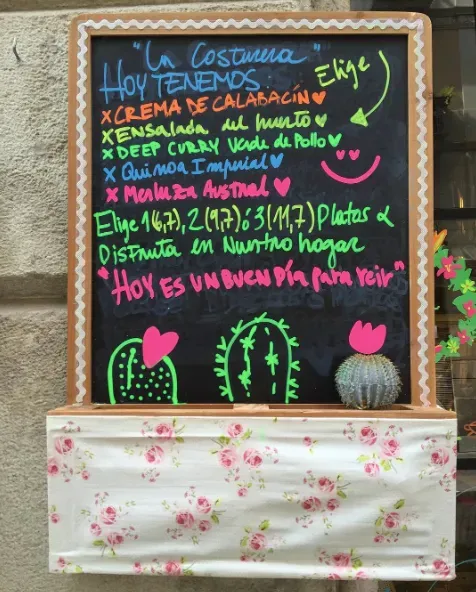 "La Costurera"
HOY TENEMOS: Elige
x CREMA DE CALABACÍN
x ENSalada del huerto
x DEEP CURRY Verde de Pollo
x Quinoa Imperial
x Merluza Austral
Elige 1(6,7), 2(9,7) ó 3(11,7) Platos &
DISFruta en Nuestro hogar
"HOY ES UN BUEN DÍA para reir"